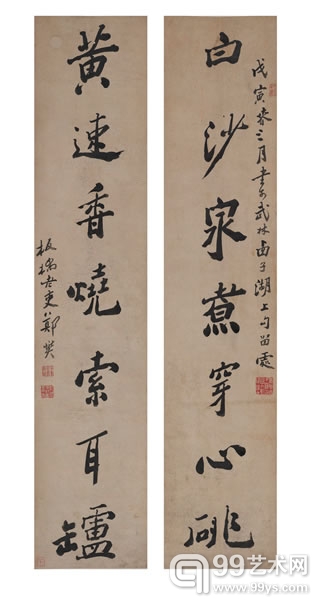 白沙泉煮穿心
戊寅春三月書於武林西子湖上勾留處
黄速香燒索耳罏
板橋老鄭燮
99艺术网
www.99ys.com